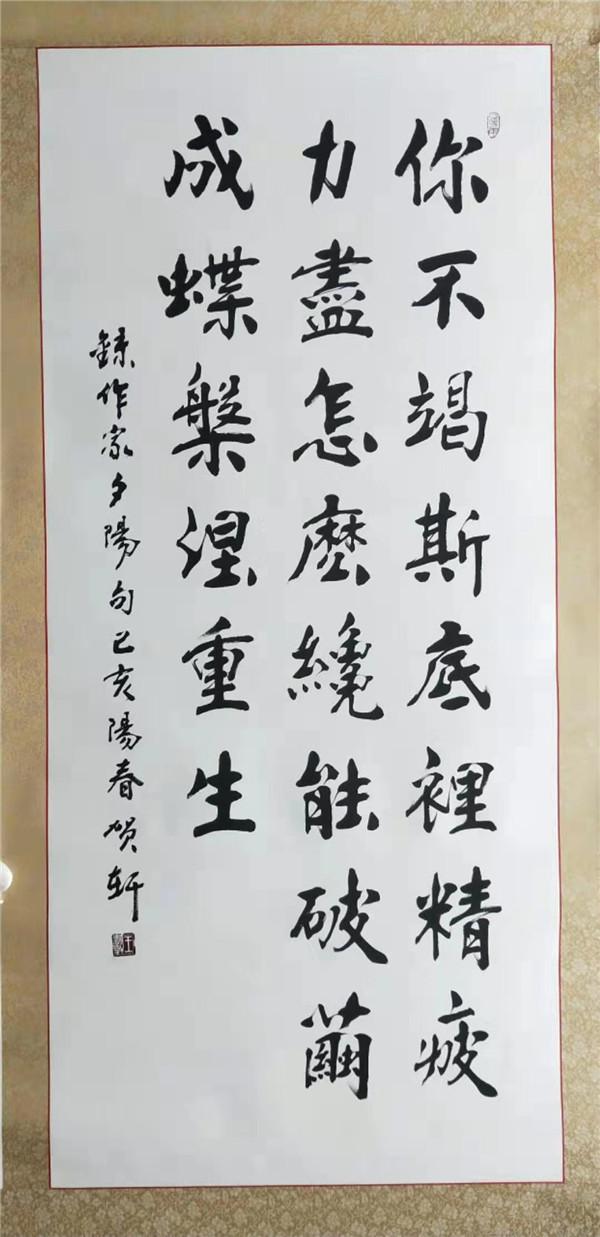 你不竭斯底裡精疲
力盡怎麽纔能破繭
成蝶槃涅重生
録作家夕陽句己亥陽春贺轩